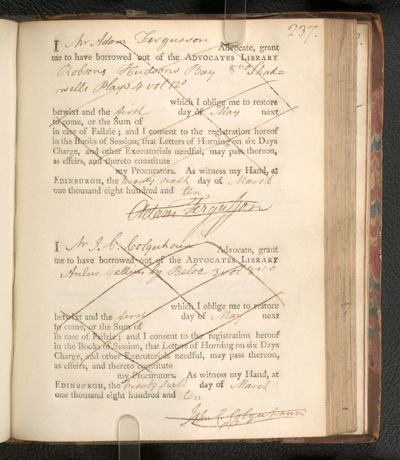 237.
I Mr Adam Fergusson Advocate, grant
me to have borrowed out of the ADVOCATES LIBRARY
Robsons Hudsons Bay 8vo Shad=
wells Plays 4 vol 12o
which I oblige me to restore
betwixt and the first day of May next
to come, or the Sum of
in case of Failzie; and I consent to the registration hereof
in the Books of Session, that Letters of Horning on six Days
Charge, and other Executorials needful, may pass thereon,
as effeirs, and thereto constitute
my Procurators. As witness my Hand, at
EDINBURGH, the twenty sixth day of March
one thousand eight hundred and ten
Adam Fergusson
I Mr J. C. Colquhoun Advocate, grant
me to have borrowed out of the ADVOCATES LIBRARY
Aulus Gellius by Beloe 3 vol 8vo
which I oblige me to restore
betwixt and the first day of May next
to come, or the Sum of
in case of Failzie; and I consent to the registration hereof
in the Books of Session, that Letters of Horning on six Days
Charge, and other Executorials needful, may pass thereon,
as effeirs, and thereto constitute
my Procurators. As witness my Hand, at
EDINBURGH, the twenty sixth day of March
one thousand eight hundred and ten
John C. Colquhoun